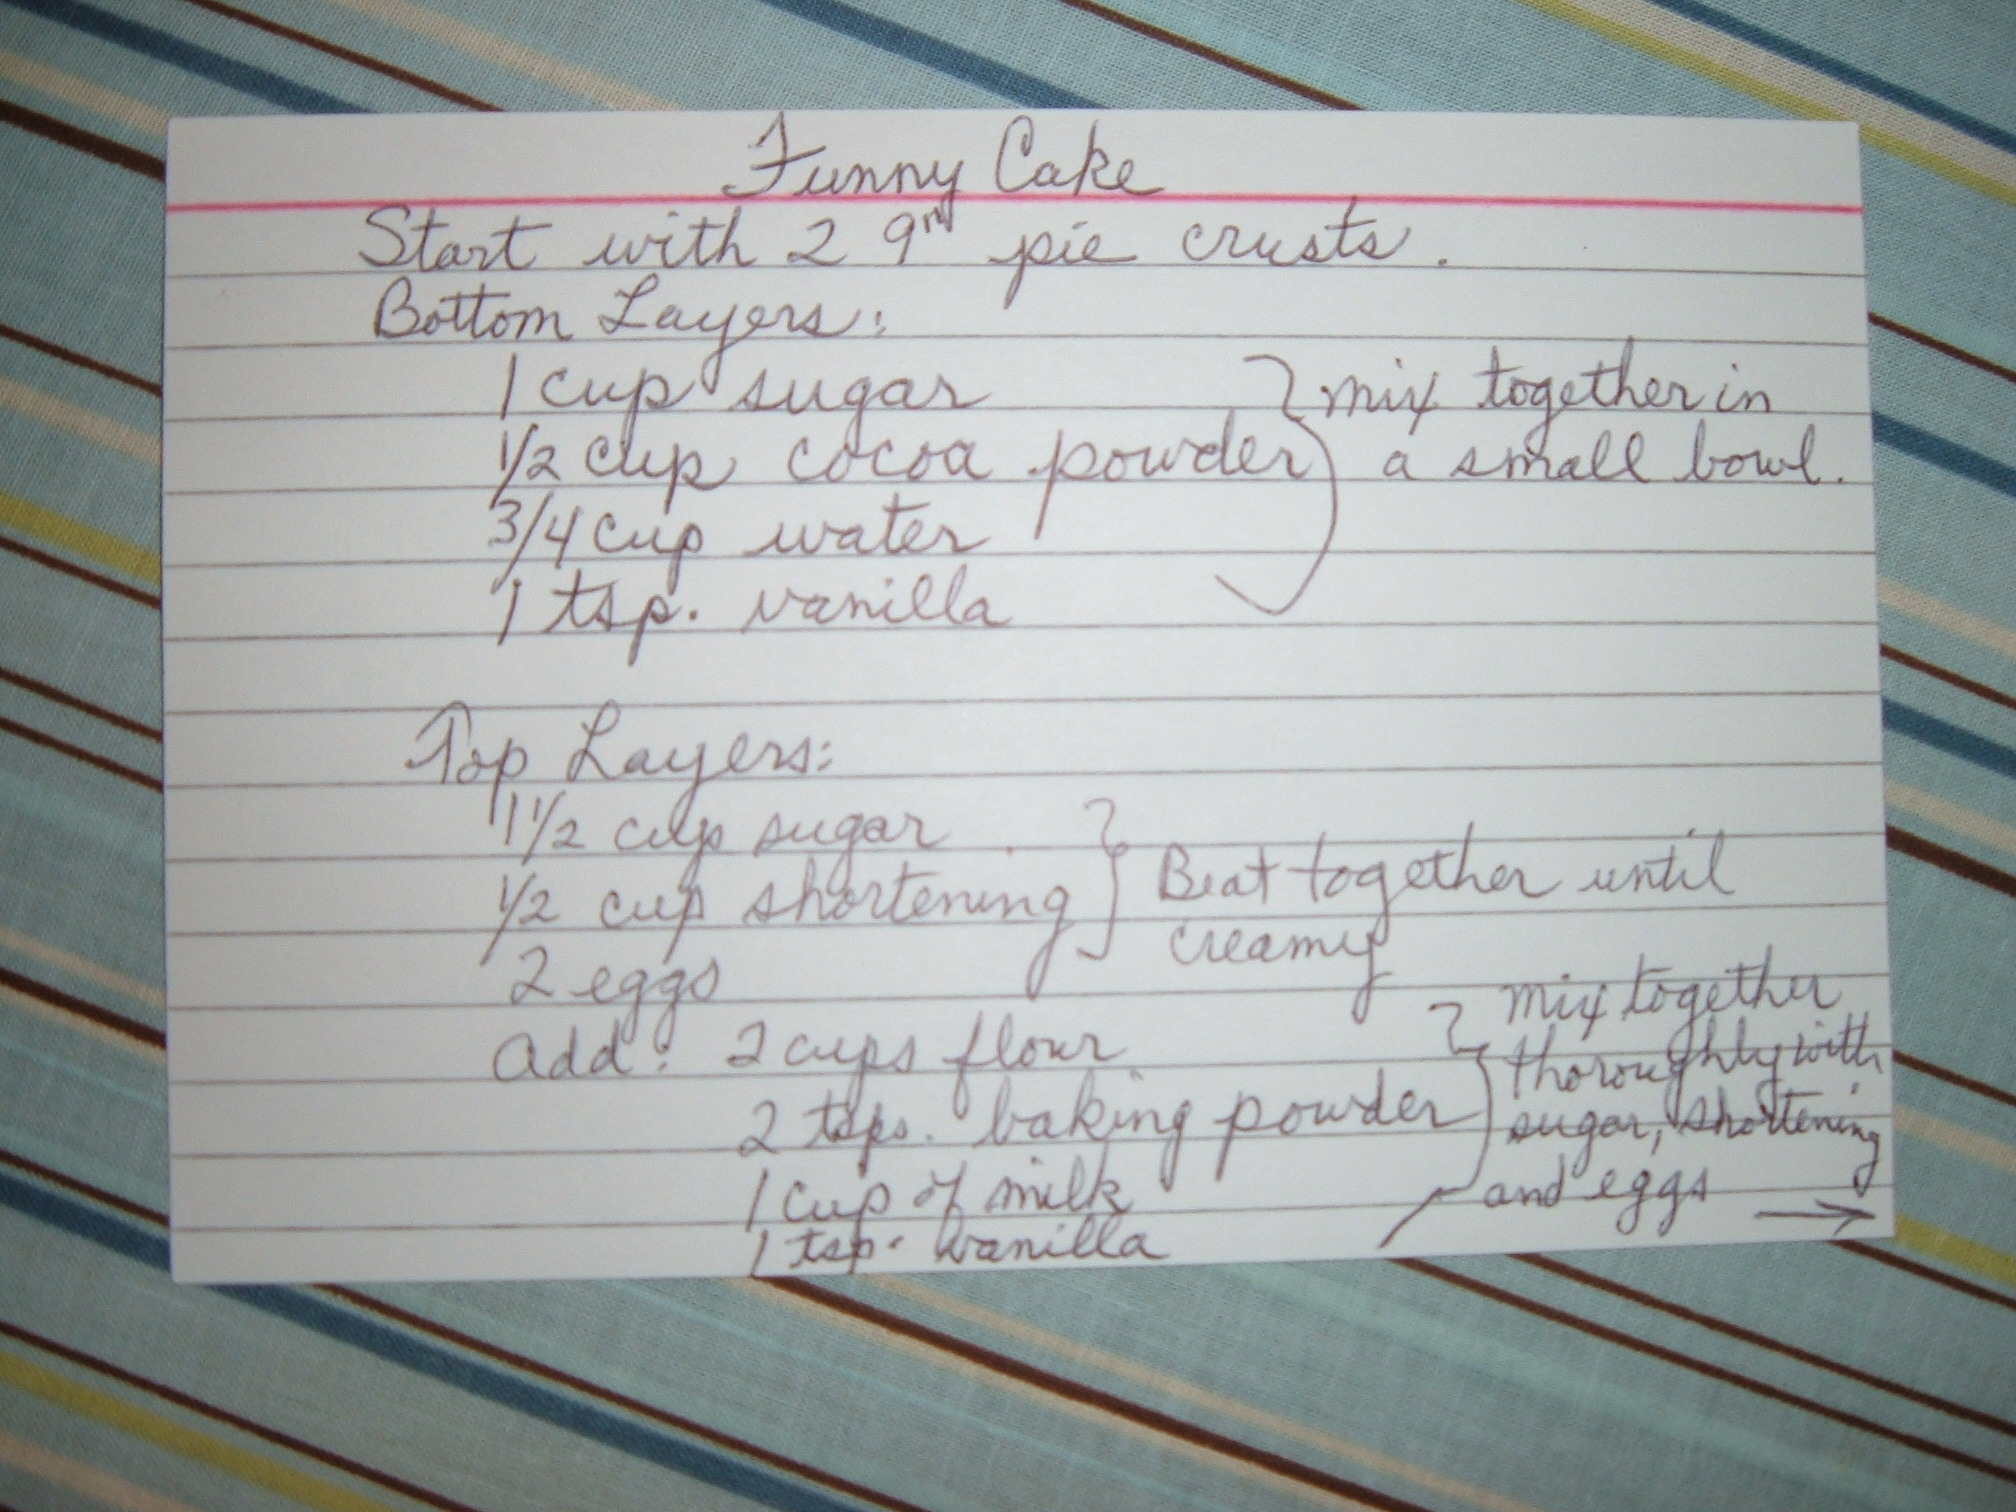 Funny Cake
Start with 2 9" pie crusts.
Bottom Layers:
1 cup sugar
1/2 cup cocoa powder
3/4 cup water
1 tsp. vanilla
} mix together in
a small bowl.
Top Layers:
1 1/2 cup sugar
1/2 cup shortening
2 eggs
} Beat together until
creamy
add: 2 cups flour
2 tsps. baking powder
1 cup of milk
1 tsp. vanilla
} mix together
thoroughly with
sugar, shortening
and eggs
→